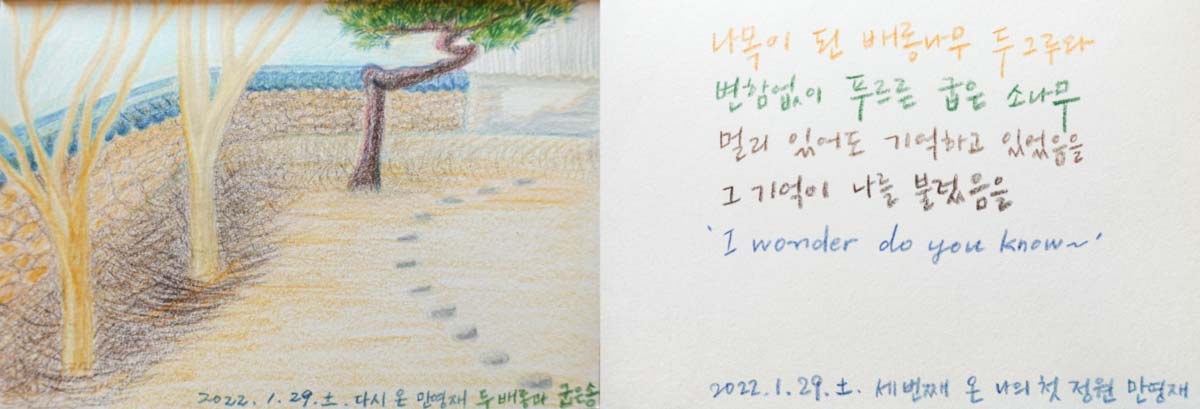 2022. 1. 29. 土. 다시 온 만영재 두 배롱과 굽은송
나목이 된 배롱나무 두 그루와
변함없이 푸르른 굽은 소나무
멀리 있어도 기억하고 있었음을
그 기억이 나를 불렀음을
'I wonder do you know~'
2022. 1. 29. 土. 세번째 온 나의 첫 정원 만영재